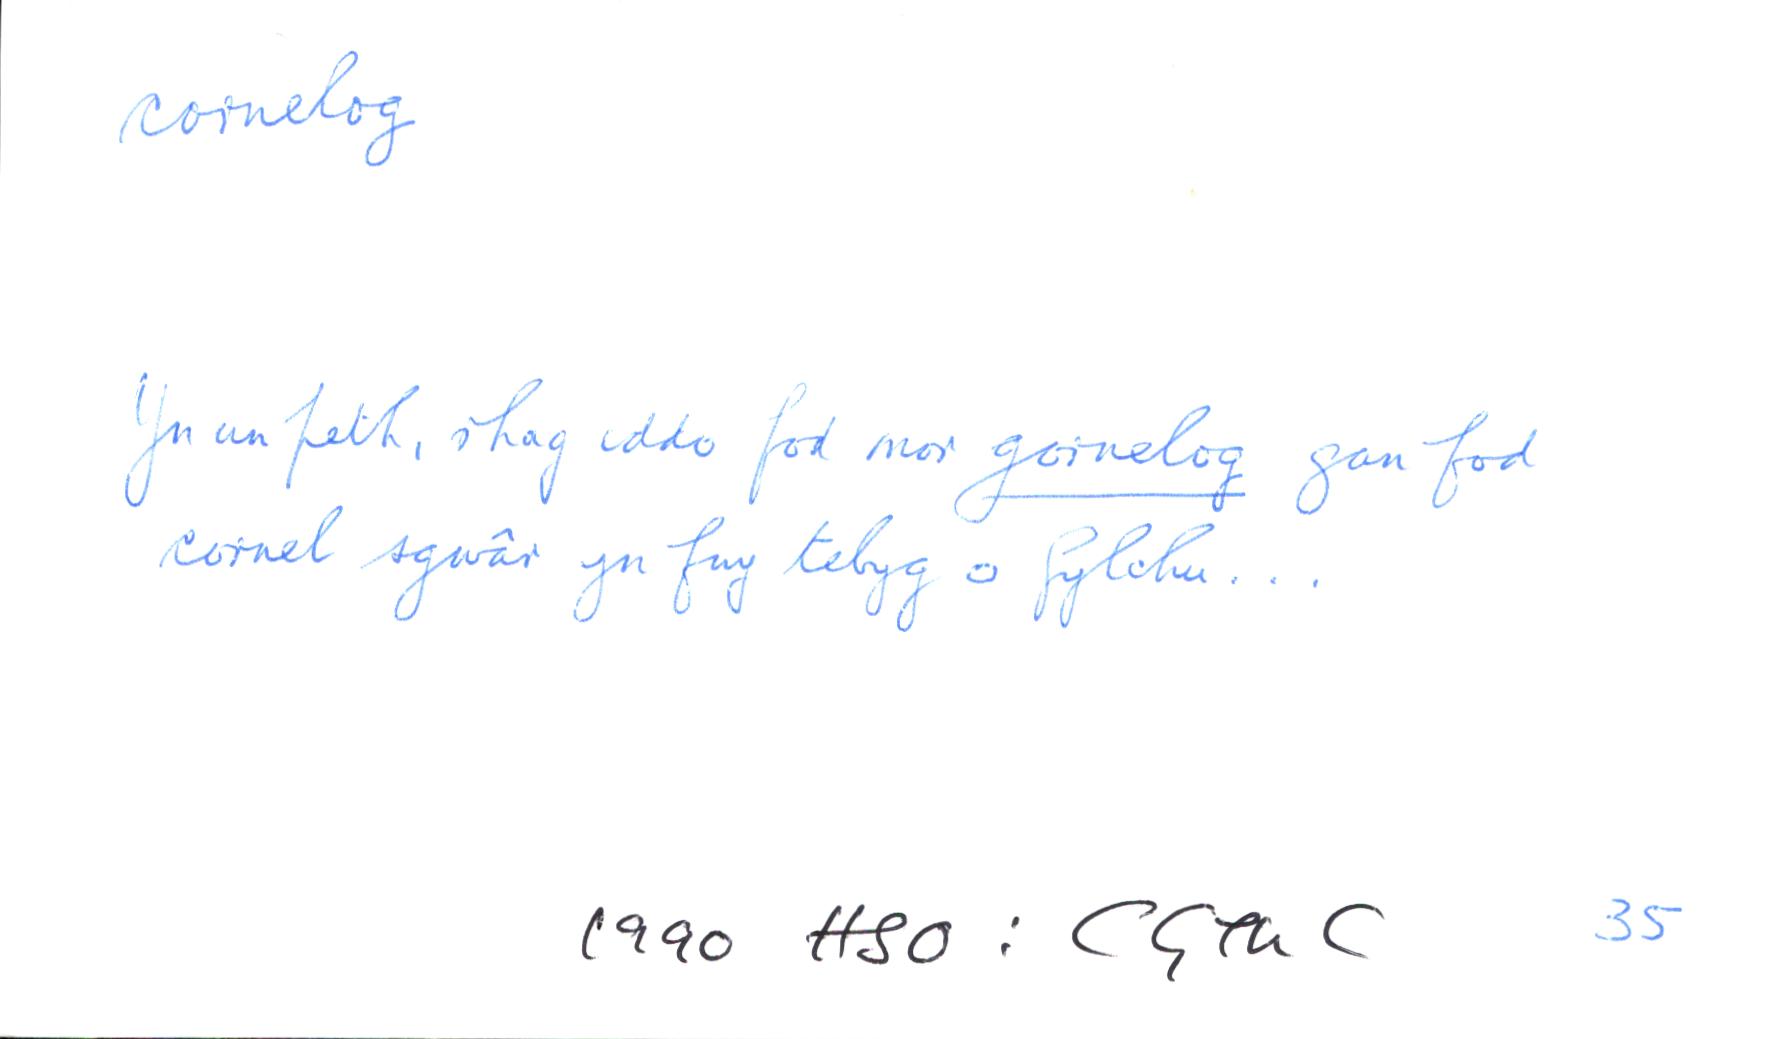 cornelog
Yn un peth, rhag iddo fod mor gornelog gan fod
cornel sgwâr yn fwy tebyg o fylchu....
1990 HSO: CGthC 35